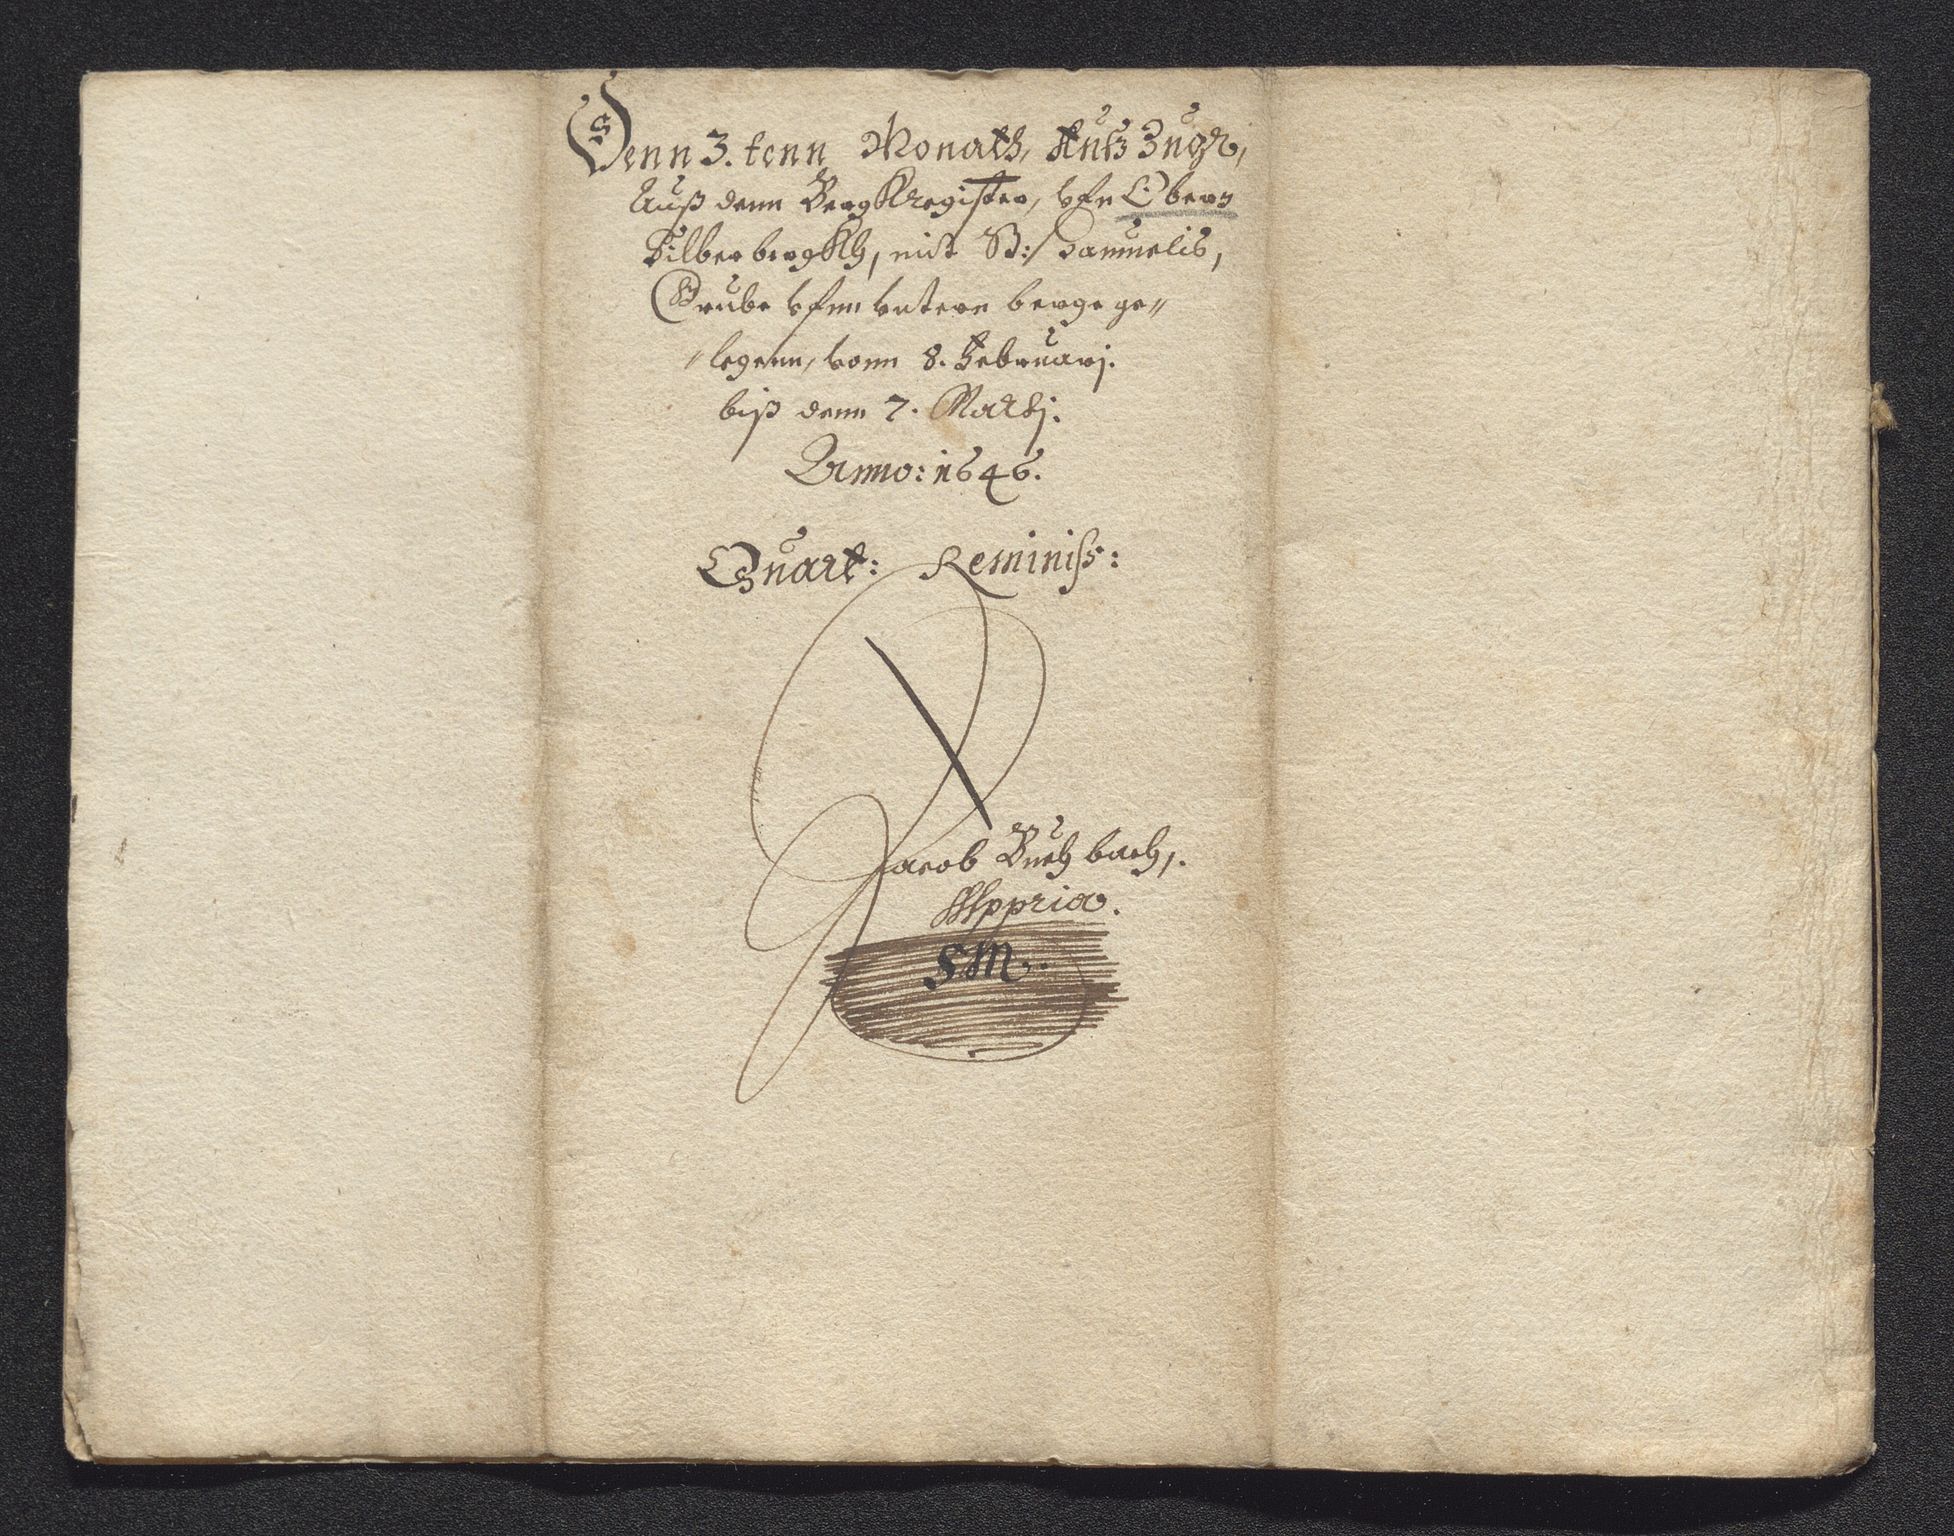 Denn 3. tenn Monath, Auß Zugk,
Auß denn BergKregister, vfn Obern
SilberbergKh, mit St:/ Samuelis,
Grube vfnn vntern berge ge//
//legenn, vonn 8. Februarj.
biß denn 7. Martj.
Anno: 1646.
Quart: Reminiß:
Jacob Buchbach,.
Mppria.
SM.